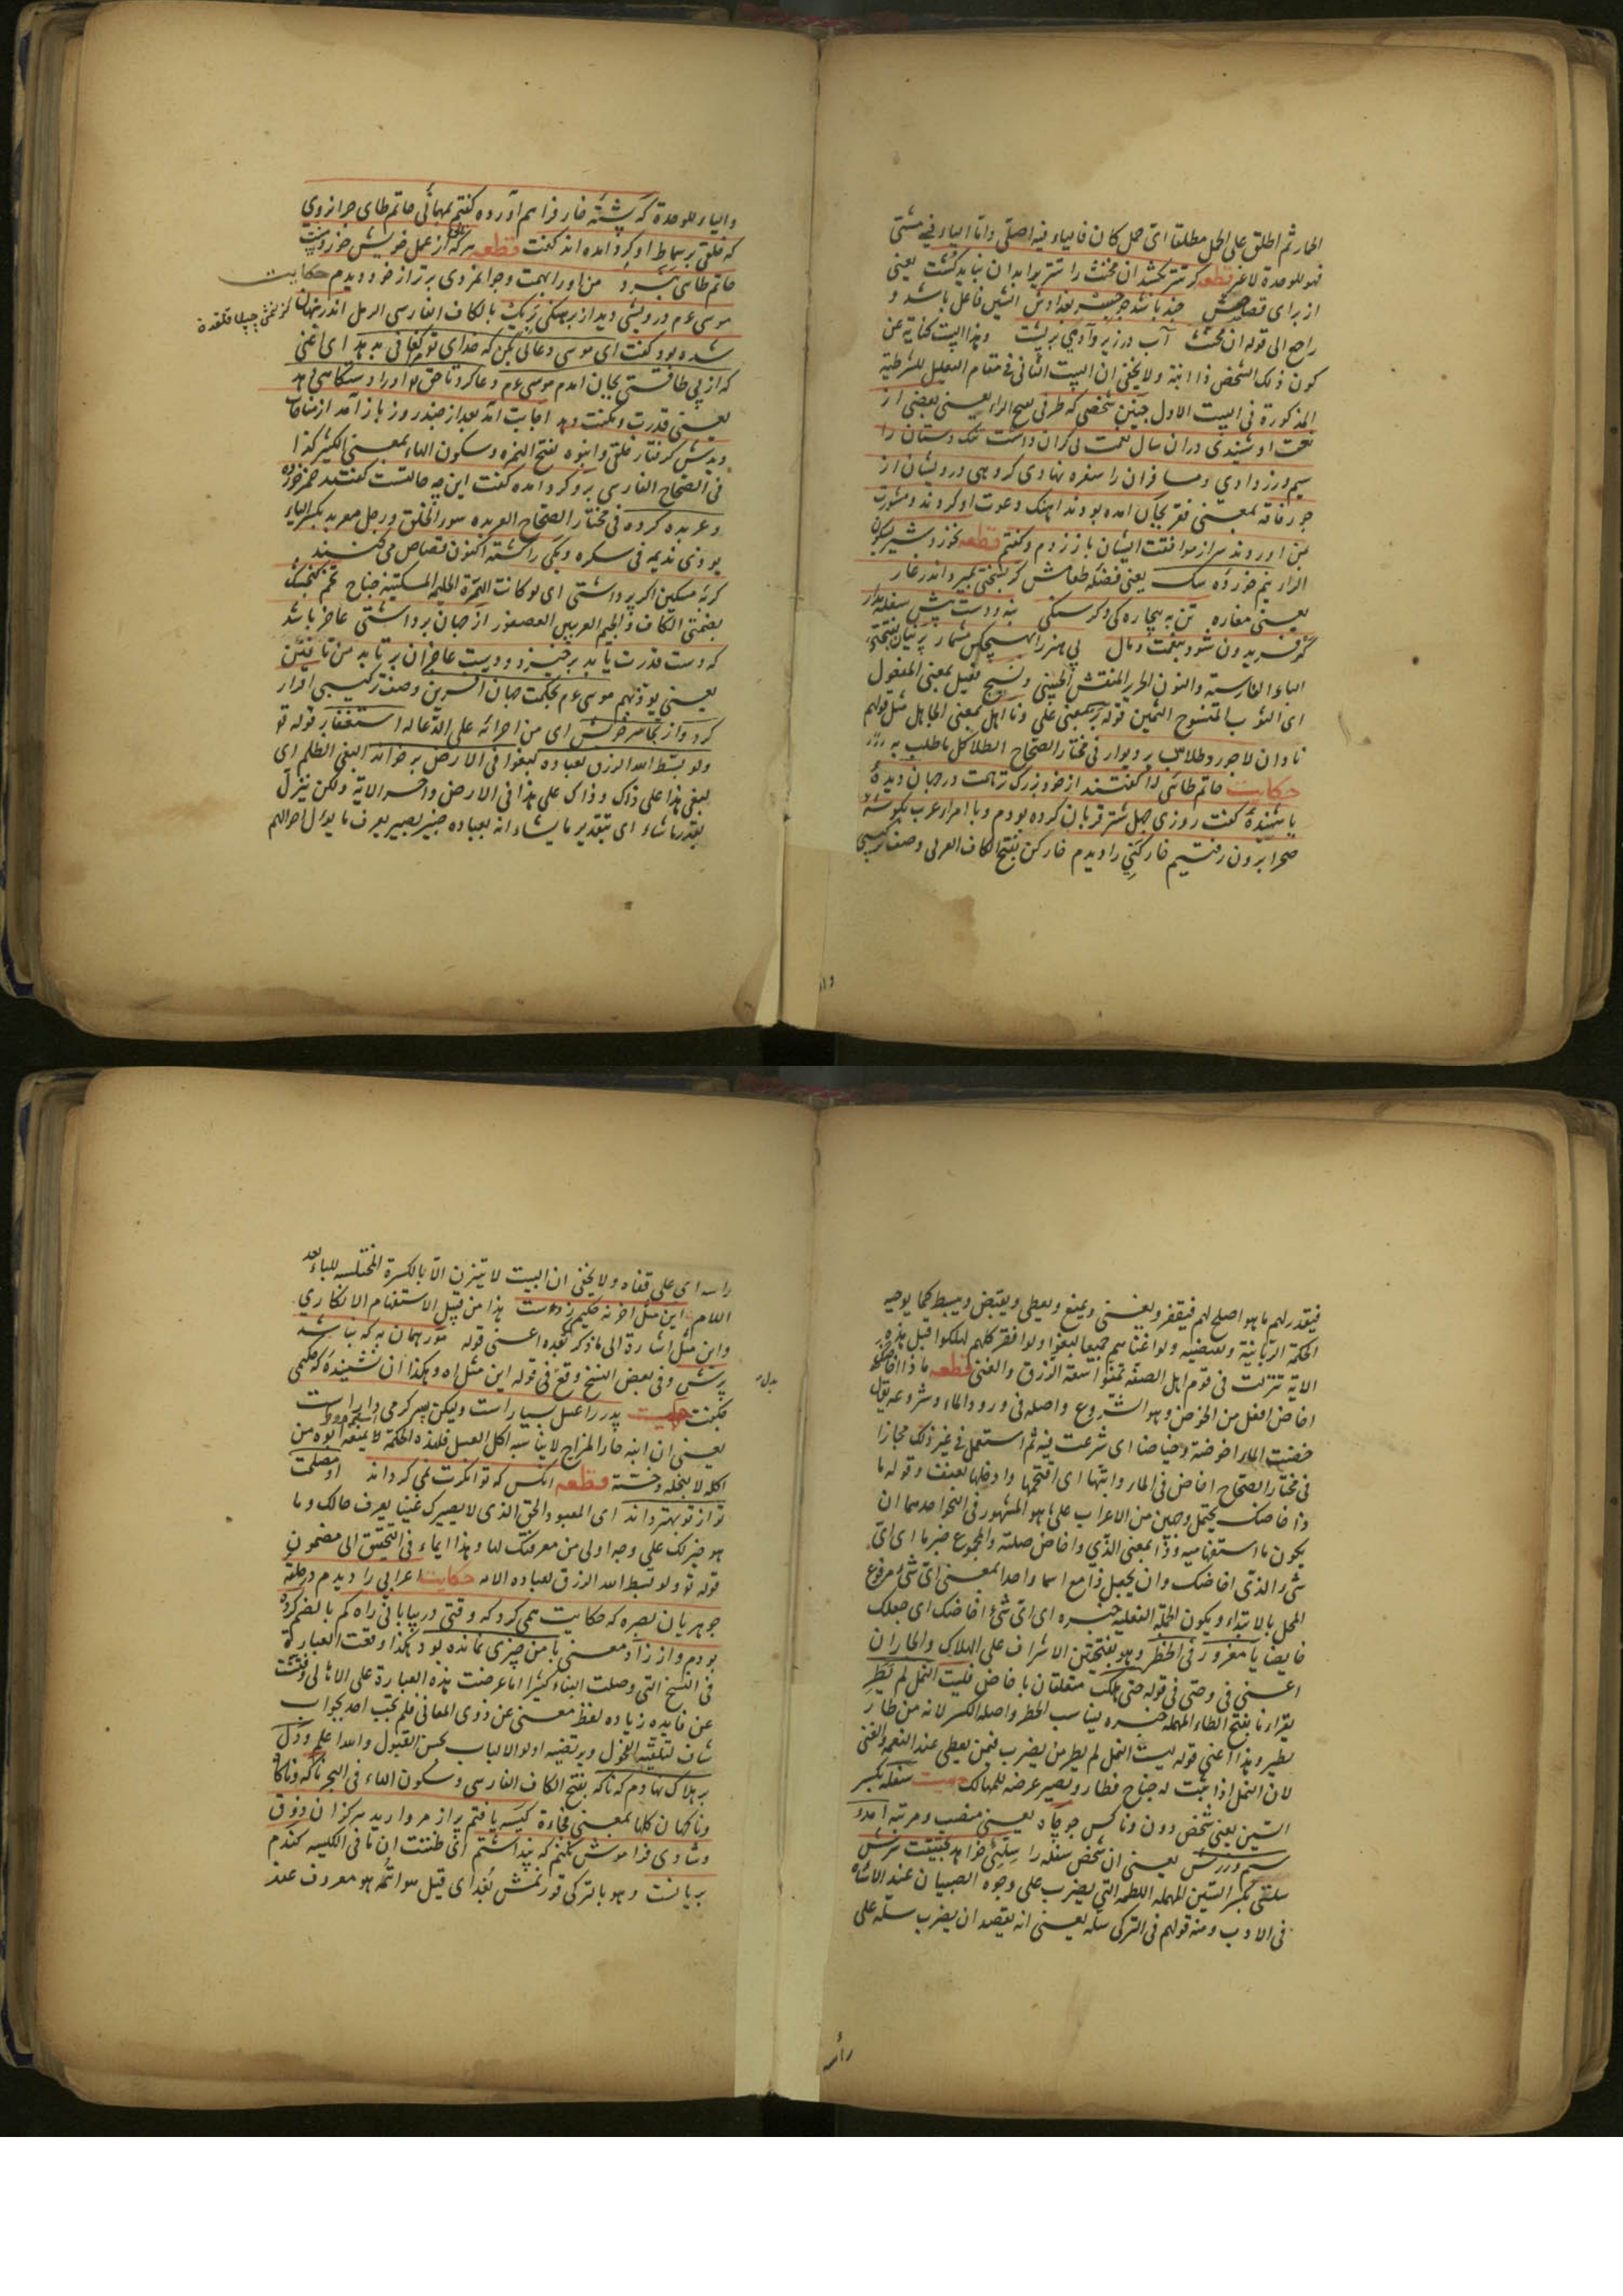 الحار ثم اطلق على الحل مطلقا اى حل كان فالياء فيه اصلى واما الياء فى مشتى
فهو للوحدة لا غير قطعه كر تتر بكشد ان مخنث را تترى را بدان نبايد كشت يعنى
از براى قصاصش چند باشد چو جسر بغدادش الشين فاعل باشد و
راجع الى قوله ان مخنث آب در زير وآدمى بر پشت وهذا البيت كناية عن
كون ذلك الشخص ذا ابنة ولا يخفى ان البيت الثانى فى مقام التعليل للشرطية
المذكورة فى البيت الاول چنين شخصى كه طرفى بفتح الراء يعنى بعضى از
نعت او شنيدى دران سال نعمت بى كران داشت تنك دستان را
سيم وزر دادى ومسافران را سفره نهادى كروهى درويشان از
جور فاقه بمعنى فقر بجان امده بودند اهنك دعوت او كردند ومشورت
بمن اوردند سر از موافقت ايشان باز زدم وكفتم قطعه نخورد شير بسكون
الراء نيم خورده سك يعنى فضله طعامش كر بسختى بميرد اندر غار
يعنى مغاره تن به بيچاره كى وكرسنكى بنه ودست پيش سفله مدار
كر فريدون شود بنعمت ومال بى هنر را بهيچكس مشمار پرنيان بفتحتى
الباء الفارسية والنون الحرير المنقش الچينى ونسيج فعيل بمعنى المفعول
اى الثوب المنسوج الثمين قوله بر بمعنى على ونا اهل بمعنى الجاهل مثل قولهم
نادان لاجورد وطلاست بر ديوار فى مختار الصحاح الطلا كل ما طلب به
حكايت حاتم طائى را كفتند از خود بزرك تر همت در جهان ديدهٔ
يا شنيدهٔ كفت روزى چهل شتر قربان كرده بودم وبا امراء عرب بكوشهٔ
صحرا برون رفتيم خاركنى را ديدم خاركن بفتح الكاف العربى وصف تركيبى
والياء للوحدة كه پشته خار فراهم آورده كفتم بمهمانى حاتم طاى چرا نروى
كه خلقى بر سماط او كرد امده اند كفت قطعه هر كه نان از عمل خويش خورد منت
حاتم طائى نبرد من او را بهمت وجوانمردى برتر از خود ديدم حكايت
موسى عم درويشى ديد از برهنكى بريك بالكاف الفارسى الرمل اندر نهان
شده بود كفت اى موسى دعائى بكن كه خداى تع مرا كفافى بدهد اى اغنى
كه از بى طاقتى بجان امدم موسى عم دعا كرد تا حق تع او را دستكاهى بدهد
يعنى قدرت ومكنت دهد اجابت آمد بعد از چند روز باز آمد از مناجات
ديدش كرفتار خلقى وانبوه بفتح الهمزه وسكون الهاء بمعنى الكثير كذا
فى الصحاح الفارسى برو كرد امده كفت اين چه حالتست كفتند خمر خورده
وعربده كرده فى مختار الصحاح العربدة سوء الخلق ورجل معربد بكسر الباء
يوذى نديمه فى سكره ويكى را كشته اكنون قصاص مى كنند
كربه مسكين اكر پر داشتى اى لو كانت الهرة المسكينة جناح تخم كنجشك
بضمتى الكاف والجيم العربيين العصفور از جهان برداشتى عاجز باشد
كه دست قدرت يابد برخيزد ودست عاجزان برتابد من تافتن
يعنى يوذيهم موسى عم بحكمت جهان افرين وصف تركيبى اقرار
كرد واز تجاسر خويش اى من اجرائه على الدعا له استغفار قوله تع
ولو بسط الله الرزق لعباده لبغوا فى الارض بر خواند البغى الظلم اى
لبغى هذا على ذاك وذاك على هذا فى الارض واخر الاية ولكن ينزل
بقدر ما يشاء اى بتقدير ما يشاء انه بعباده خبير بصير يعرف ما يؤل احوالهم
فيقدر لهم ما هو اصلح لهم فيفقر ويغنى ويمنع ويعطى ويقبض ويبسط كما يوجبه
الحكمة الربانية وتقتضيه ولو اغناهم جميعا لبغوا ولو افقر كلهم لهلكوا قيل هذه
الاية تنزلت فى قوم اهل الصفه تمنوا سعة الرزق والغنى قطعه ما ذا اخاضك
اخاض افعل من الخوض وهو الشروع واصله فى ورود الماء وشروعه يقال
خضت الماء اخوضه وخياضا اى شرعت فيه ثم استعمل فى غير ذلك مجازا
فى مختار الصحاح اخاض فى الماء دابتها اى اقتحمها وادخلها بعنف وقوله ما
ذا خاضك يحتمل وجهين من الاعراب على ما هو المشهور فى النحو احدهما ان
يكون ما استفهاميه وذا بمعنى الذى واخاض صلته والمجموع خبر ما اى اى
شىء الذى اخاضك وان يجعل ذا مع ما اسما واحدا بمعنى اى شىء مرفوع
المحل بالابتداء ويكون الجملة الفعلية خبره اى اى شىء اخاضك اى جعلك
خايضا يا مغرور فى الخطر وهو بفتحتين الاشراف على الهلاك والجاران
اعنى فى وحتى فى قوله حتى هلكت متعلقان باخاض فليت النمل لم يطر
يقرا بفتح الطاء المهمله خبره يناسب الخطر واصله الكسر لانه من طار
يطير وهذا اعنى قوله ليت النمل لم يطر من يضرب فيمن يعطى عند النعمة والغنى
لان النمل اذا نبت له جناح فطار ويصير عرضه للمهالك بيت سفله بكسر
السين يعنى شخص دون وناكس چو جاه يعنى منصب ومرتبه امدو
سيم وزرش يعنى ان شخص سفله را سيلئى خواهد بحقيقت سرش
سلى بكسر السين المهمله اللطمه التى يضرب على وجوه الصبيان عند الاساءة
فى الادب ومنه قولهم فى التركى سله يعنى انه يقصد ان يضرب سله على
راسه
راسه اى على قفاه ولا يخفى ان البيت لا يتزن الا بالكسرة المختلسه للباء بعد
اللام اين مثل اخر نه حكيم زده ست هذا من قبيل الاستفهام الانكارى
واين مثل اشارة الى ما ذكر بعده اعنى قوله مور همان به كه نباشد
پرش وفى بعض النسخ وقع فى قوله اين مثل اه وهكذا ان نشنيدهٔ كه حكيمى
بدل
چه كفت بيت پدر را عسل بسيار است وليكن پسر كرمى دار است
يعنى ان ابنه حار المزاج لا يناسبه اكل العسل فلهذه الحكمة لا يمنعه ابوه من
اكله لا لبخله وخسته قطعه انكس كه توانكرت نمى كرداند او مصلحت
تو از تو بهتر داند اى المعبود الحق الذى لا يصيرك غنيا يعرف حالك وما
هو خير لك على وجه اولى من معرفتك لها وهذا ايماء فى التحقيق الى مضمون
قوله تع ولو بسط الله الرزق لعباده الايه حكايت اعرابى را ديدم در حلقه
جوهريان بصره كه حكايت همى كرد كه وقتى در بيابانى راه كم بالضم كرده
بودم واز زاد معنى با من چيزى نمانده بود هكذا وقعت العبارة
فى النسخ التى وصلت الينا وكثيرا ما عرضت هذه العبارة على الاهالى وفتشت
عن فايده زياده لفظ معنى عن ذوى المعانى فلم يجب احد بجواب
شاف لتلقيه الفحول ويرتضيه اولو الالباب بحسن القبول والله اعلم ودل
بر هلاك نهادم كه ناكه بفتح الكاف الفارسى وسكون الهاء فى البحر ناكه وناكاه
وناكهان كلها بمعنى فجاءة كيسه يافتم پر از مرواريد هركز ان ذوق
وشادى فراموش نكنم كه پنداشتم اى ظننت ان ما فى الكيسه كندم
بريانست وهو بالتركى قورلمش بغداى قيل سواء انه هو معروف عند